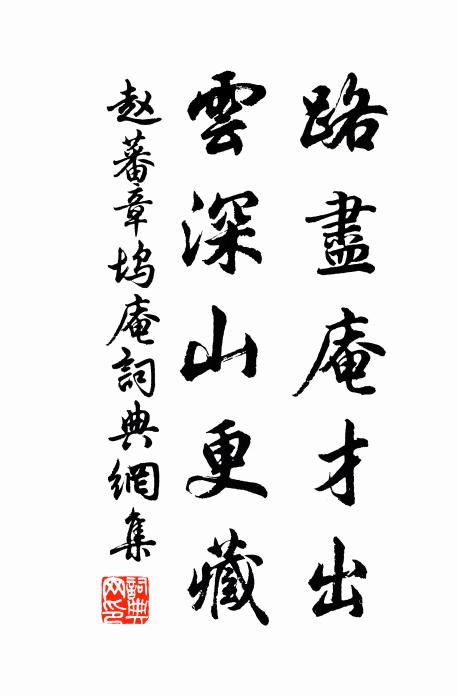 路盡庵才出
雲深山更藏
赵蕃章塢庵詞典網集
詞典网印